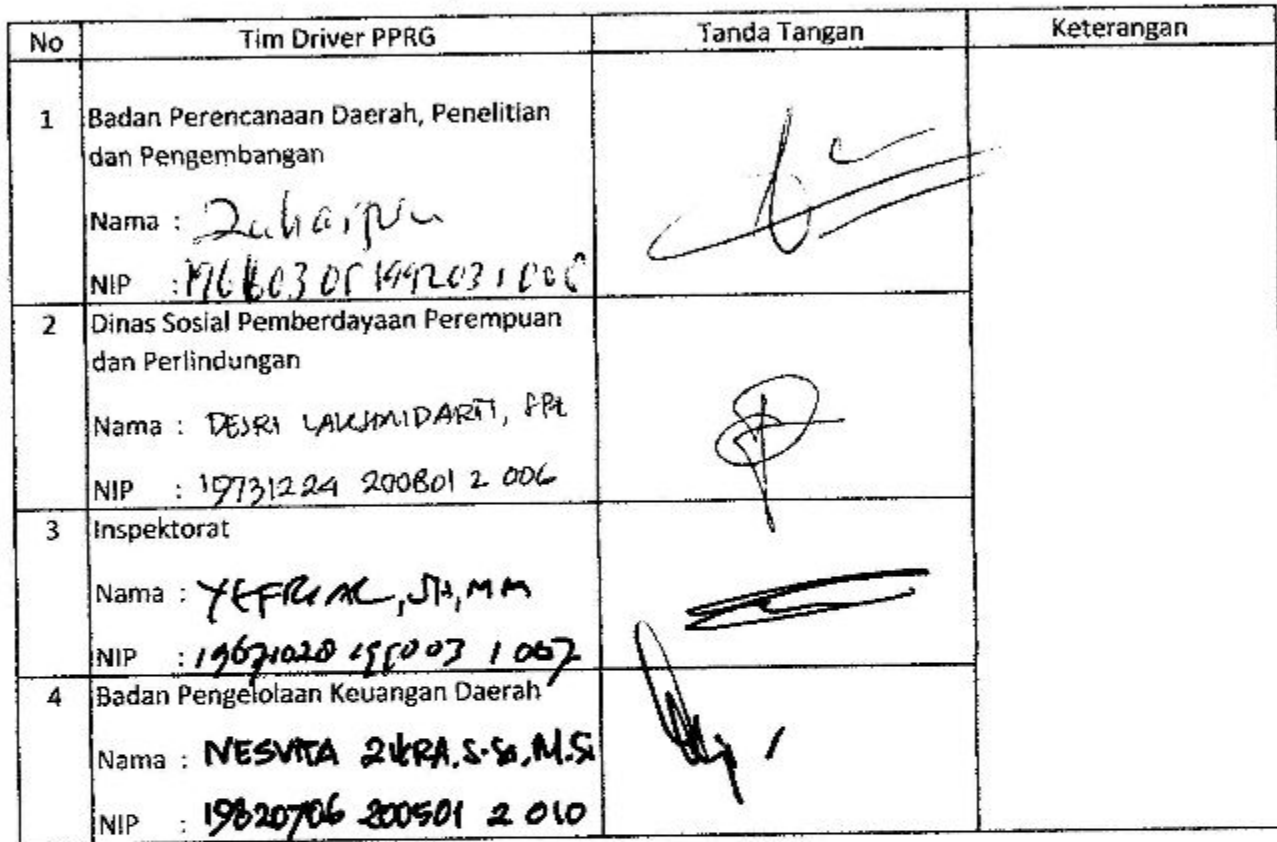 No Tim Driver PPRG Tanda Tangan Keterangan
1 Badan Perencanaan Daerah, Penelitian
dan Pengembangan
Nama :
NIP :
2 Dinas Sosial Pemberdayaan Perempuan
dan Perlindungan
Nama : DESRI
NIP : 19731224 200801 2 006
3 Inspektorat
Nama : YEFRIAL, SH, MM
NIP :
4 Badan Pengelolaan Keuangan Daerah
Nama : NESVITA ZIKRA, S.Si, M.Si
NIP : 19820706 200501 2 010